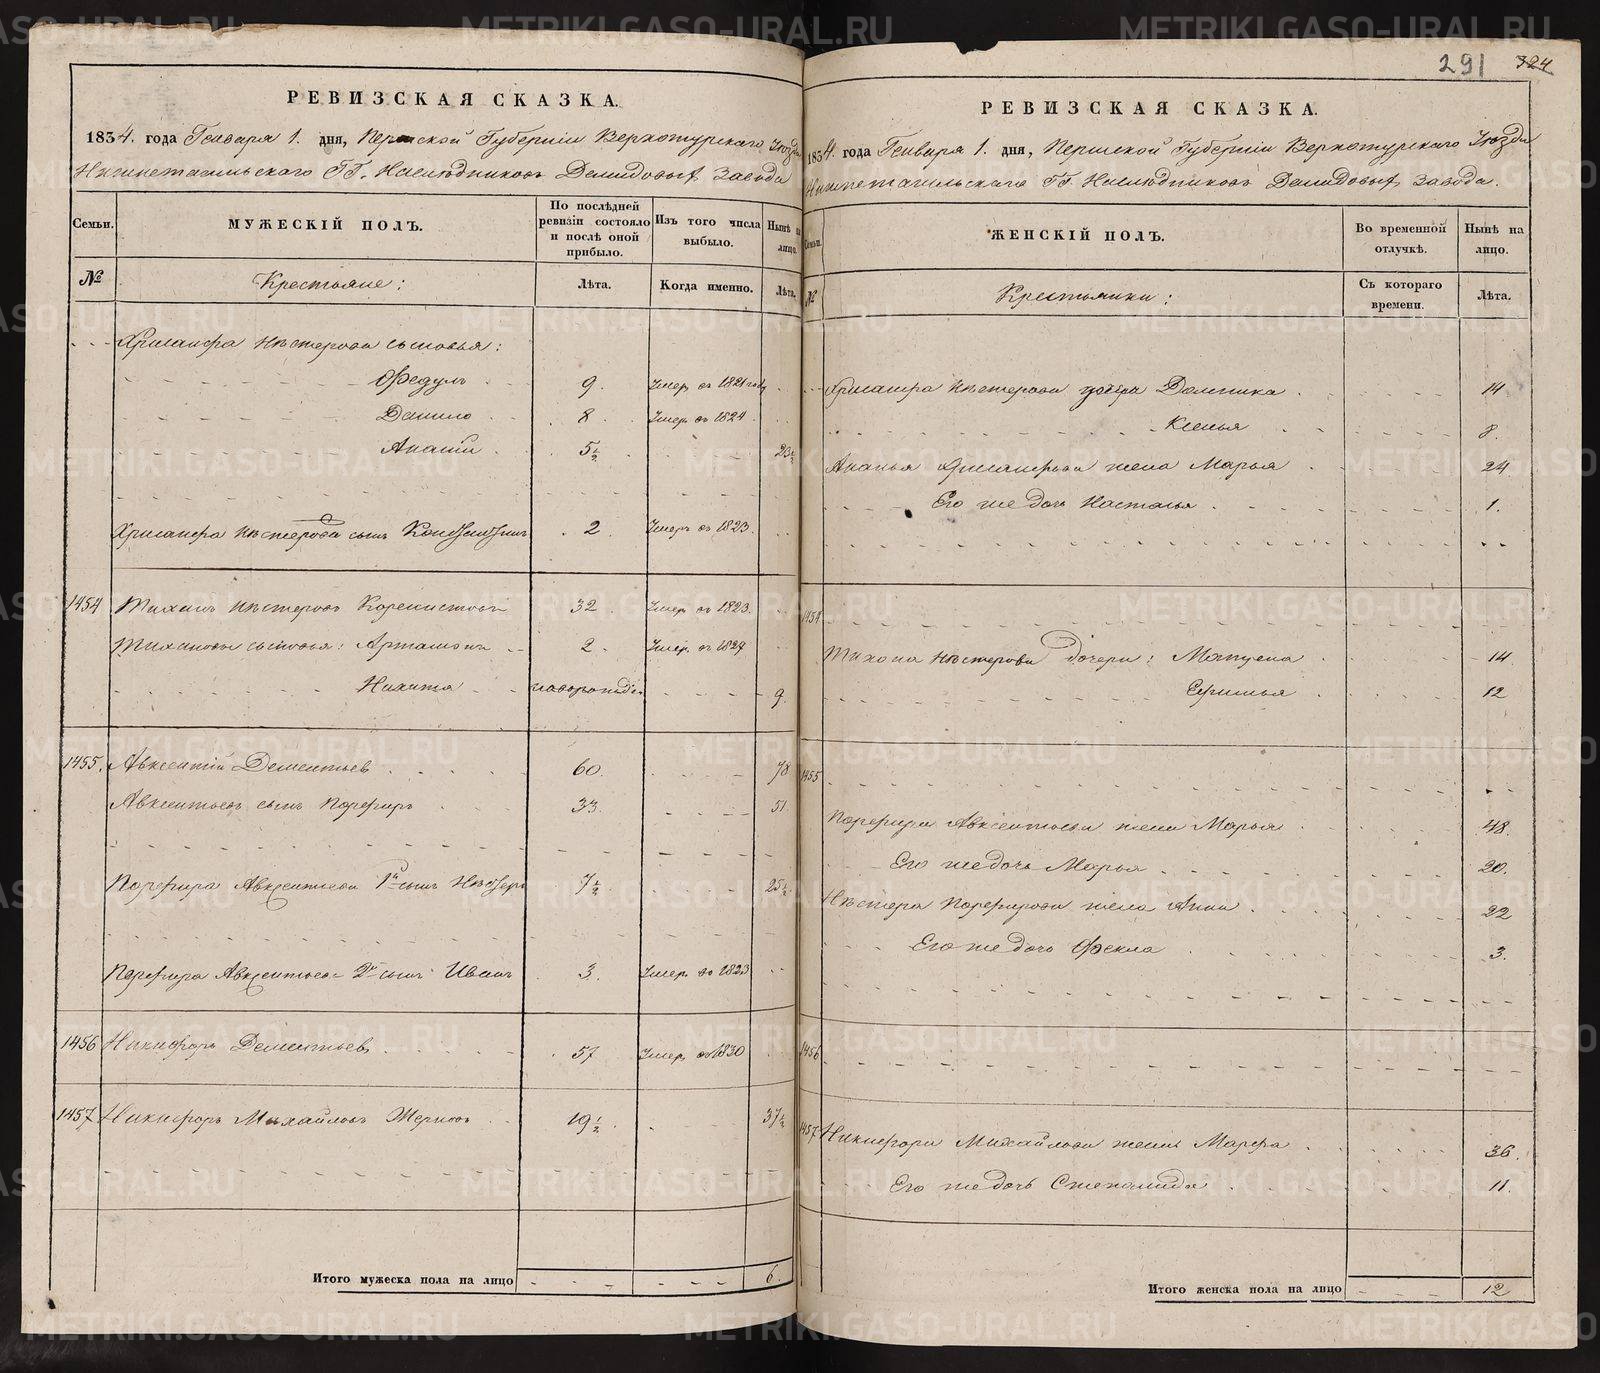 291 324
РЕВИЗСКАЯ СКАЗКА.
1834. года Генваря 1. дня, Пермской Губерніи Верхотурскаго Уѣзда
Нижнетагильскаго ГГ. Наслѣдниковъ Демидовыхъ Завода
Семьи. МУЖЕСКІЙ ПОЛЪ. По послѣдней ревизіи состояло и послѣ оной прибыло. Изъ того числа выбыло. Нынѣ на лицо.
№ Крестьяне: Лѣта. Когда именно. Лѣта.
Хрисанфа Нестерова сыновья:
Федулъ 9. Умер. въ 1821 году
Данило 8. Умер. въ 1824
Ананій 5½ 23½
Хрисанфа Нестерова сынъ Константинъ 2. Умеръ въ 1823.
1454 Тихонъ Нестеровъ 32. Умер. въ 1823.
Тихоновы сыновья: Артамонъ 2. Умер. въ 1827
Никита новорожден 9.
1455. Авксентій Дементьевъ 60. 78
Авксентьевъ сынъ Порфиръ 33. 51
Порфира Авксентьева 1й сынъ Нестеръ 7½ 25½
Порфира Авксентьева 2й сынъ Иванъ 3. Умер. въ 1823
1456 Никифоръ Дементьевъ 57 Умер. въ 1830
1457 Никифоръ Михайловъ 19½ 37½
Итого мужеска пола на лицо 6.
РЕВИЗСКАЯ СКАЗКА.
1834. года Генваря 1. дня, Пермской Губерніи Верхотурскаго Уѣзда
Нижнетагильскаго ГГ. Наслѣдниковъ Демидовыхъ Завода.
Семьи. ЖЕНСКІЙ ПОЛЪ. Во временной отлучкѣ. Нынѣ на лицо.
№ Крестьянки: Съ котораго времени. Лѣта.
Хрисанфа Нестерова дочери Домника 14
Ксенья 8.
Ананья Хрисанфова жена Марья 24
Его же дочь Настасья 1.
1454
Тихона Нестерова дочери: Матрена 14
12
1455
Порфира Авксентьева жена Марья 48.
Его же дочь Марья 20.
Нестера Порфирова жена Анна 22
Его же дочь Фекла 3.
1456
1457 Никифора Михайлова жена Марфа 36.
Его же дочь Степанида 11.
Итого женска пола на лицо 12
METRIKI.GASO-URAL.RU